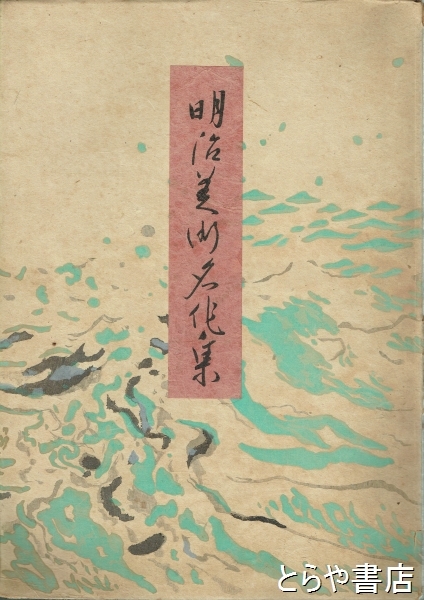 明治美術名作集
とらや書店